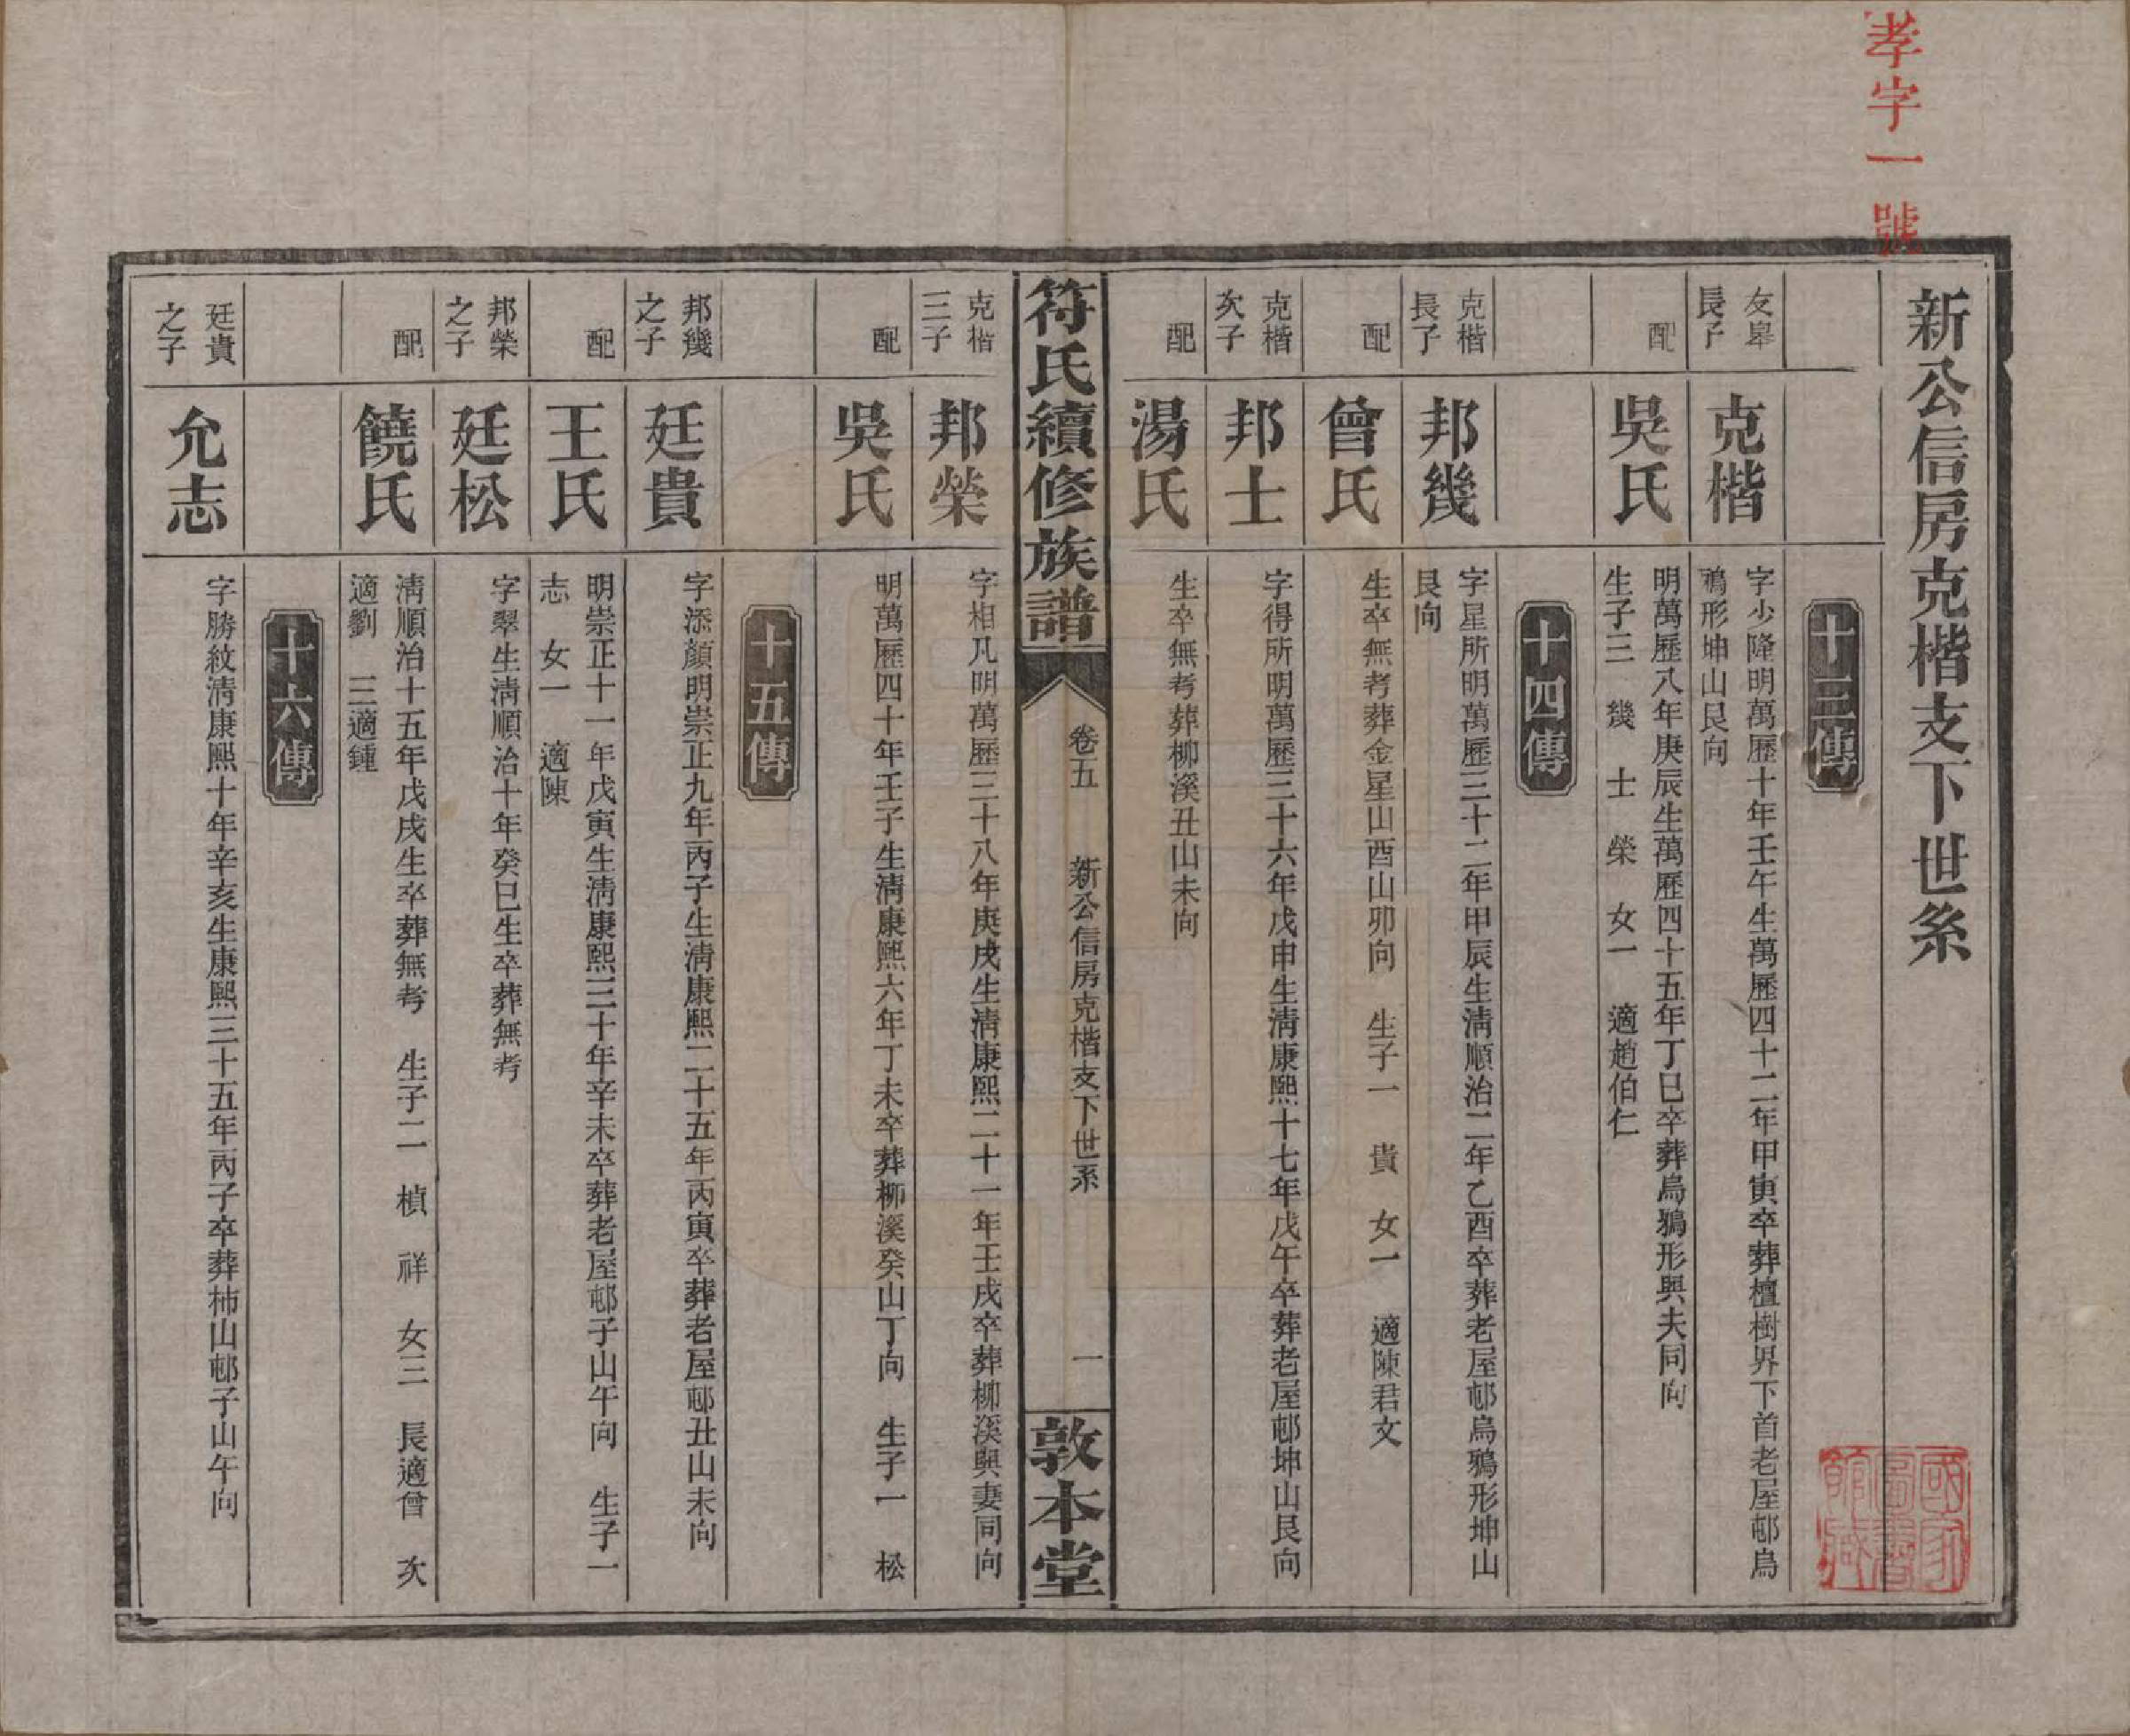 孝字一號
新公信房克楷支下世系
十三傳
友皋長子
克楷
字少隆明萬歷十年壬午生萬歷四十二年甲寅卒葬檀樹界下首老屋邨烏
鴉形坤山艮向
配
吳氏
明萬歷八年庚辰生萬歷四十五年丁巳卒葬烏鴉形與夫同向
生子三 幾 士 榮 女一 適趙伯仁
十四傳
克楷長子
邦幾
字星所明萬歷三十二年甲辰生清順治二年乙酉卒葬老屋邨烏鴉形坤山
艮向
配
曾氏
生卒無考葬金星山酉山卯向 生子一 貴 女一 適陳君文
克楷次子
邦士
字得所明萬歷三十六年戊申生清康熙十七年戊午卒葬老屋邨坤山艮向
配
湯氏
生卒無考葬柳溪丑山未向
符氏續修族譜
卷五 新公信房克楷支下世系 一
敦本堂
克楷三子
邦榮
字相凡明萬歷三十八年庚戌生清康熙二十一年壬戌卒葬柳溪與妻同向
配
吳氏
明萬歷四十年壬子生清康熙六年丁未卒葬柳溪癸山丁向 生子一 松
十五傳
邦幾之子
廷貴
字添顏明崇正九年丙子生清康熙二十五年丙寅卒葬老屋邨丑山未向
配
王氏
明崇正十一年戊寅生清康熙三十年辛未卒葬老屋邨子山午向 生子一
志 女一 適陳
邦榮之子
廷松
字翠生清順治十年癸巳生卒葬無考
配
饒氏
清順治十五年戊戌生卒葬無考 生子二 楨 祥 女三 長適曾 次
適劉 三適鍾
十六傳
廷貴之子
允志
字勝紋清康熙十年辛亥生康熙三十五年丙子卒葬柿山邨子山午向
國家圖書館藏